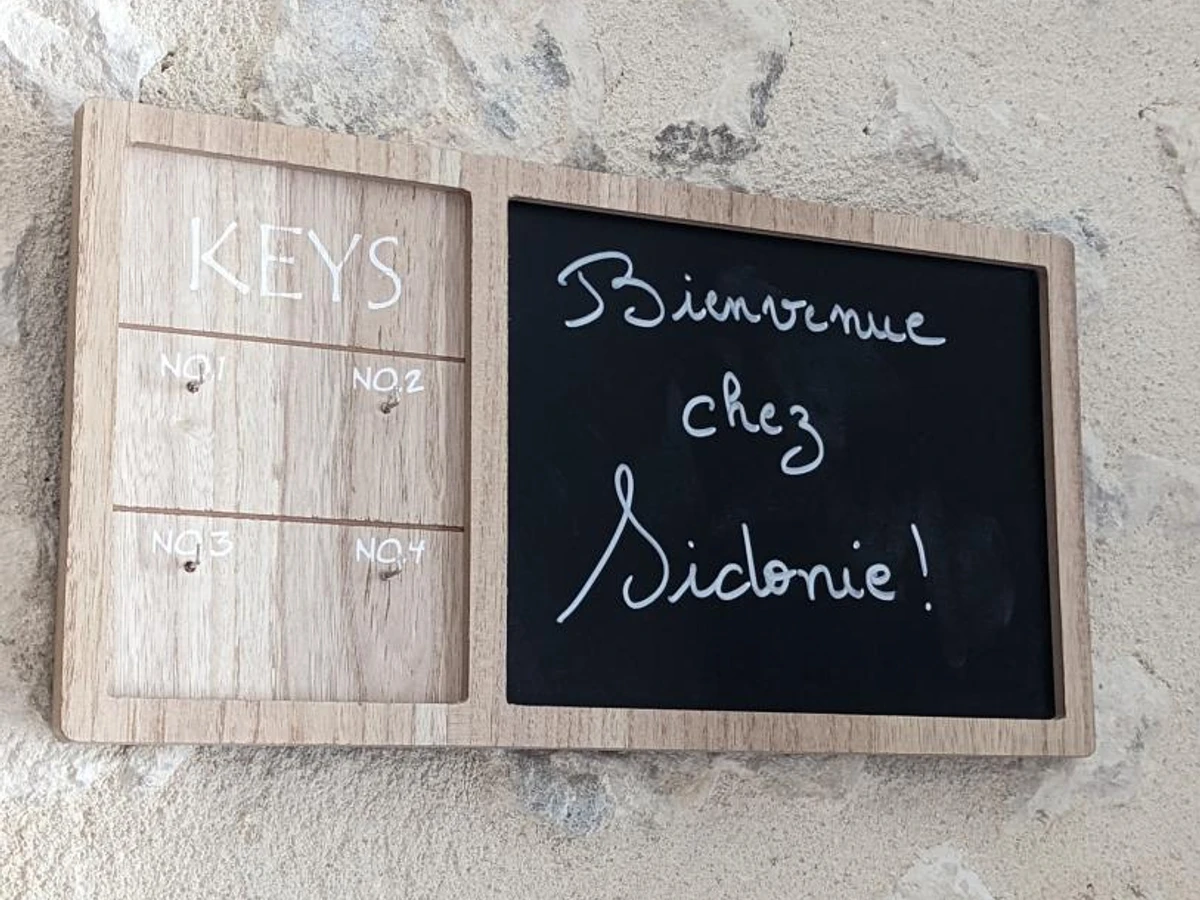 KEYS
NO.1 NO.2
NO.3 NO.4
Bienvenue
chez
Sidonie!